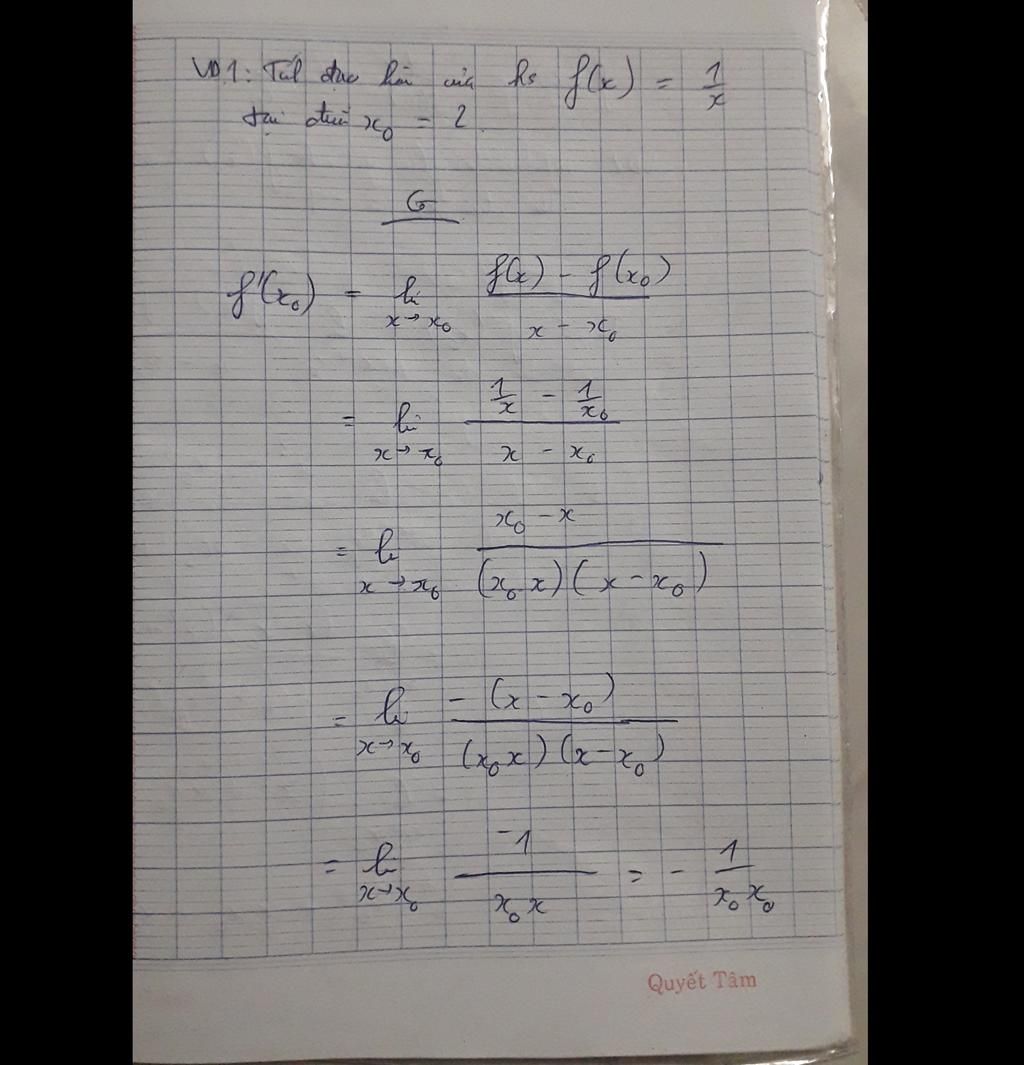 VD1: Tính đạo hàm của hs f(x) = 1/x
tại điểm x₀ = 2
G
f'(x₀) = lim x→x₀ (f(x) - f(x₀))/(x - x₀)
= lim x→x₀ (1/x - 1/x₀)/(x - x₀)
= lim x→x₀ (x₀ - x)/((x₀x)(x - x₀))
= lim x→x₀ -(x - x₀)/((x₀x)(x - x₀))
= lim x→x₀ -1/(x₀x) = - 1/(x₀x₀)
Quyết Tâm